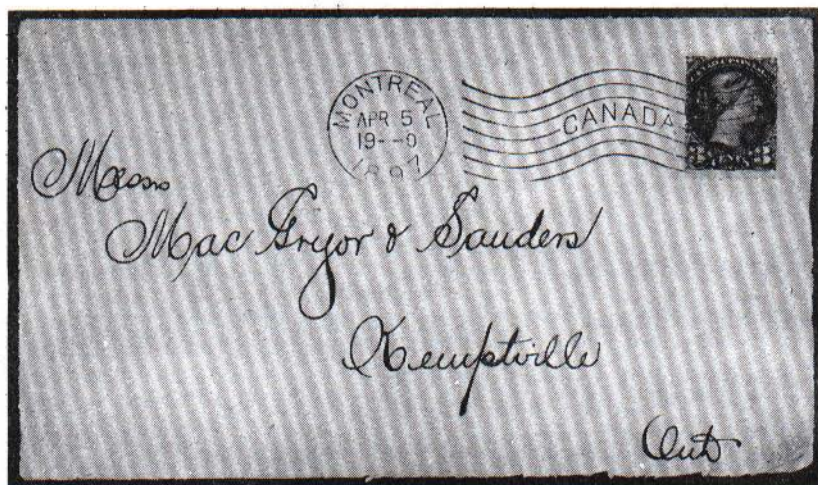 MONTREAL
APR 5
19--0
1897
CANADA
3 CENTS 3
Messrs
Mac Gryor & Sauders
Kemptville
Ont